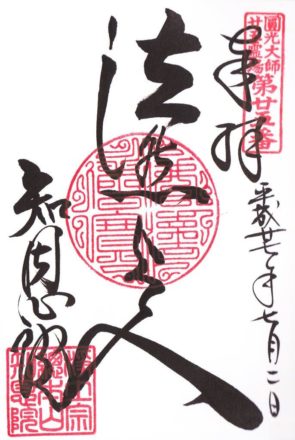 圓光大師
廿五霊場
第廿五番
奉拝
平成 年七月二日
法然上人
知恩院
浄土宗
總本山
知恩院